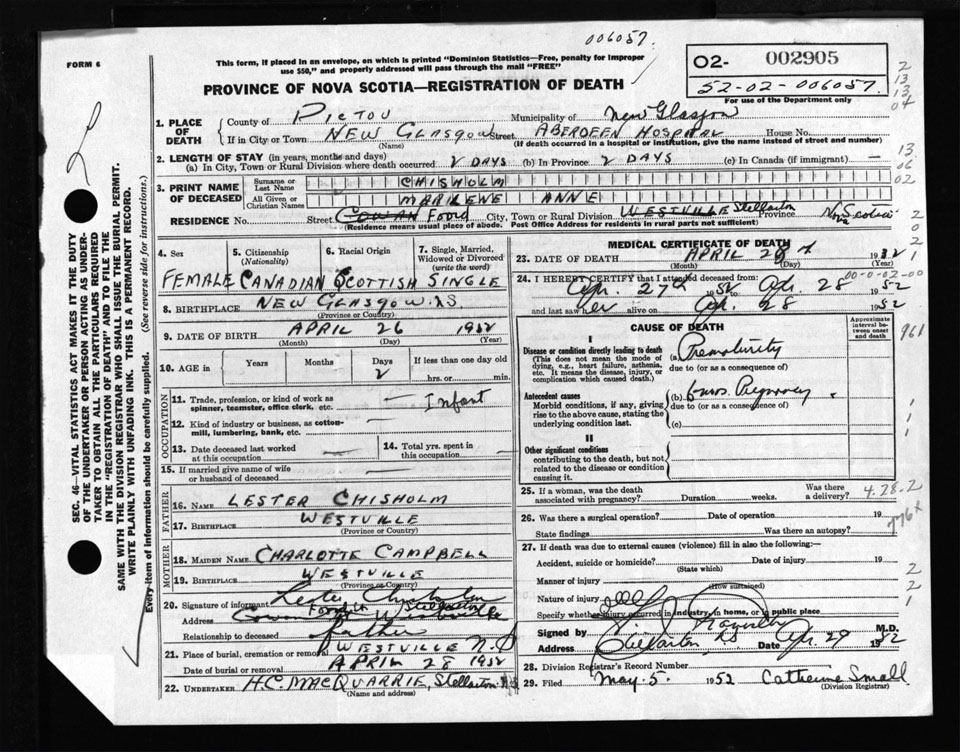 006057
FORM 6
This form, if placed in an envelope, on which is printed "Dominion Statistics—Free, penalty for improper
use $50," and properly addressed will pass through the mail "FREE"
O2- 002905
52-02-006057
For use of the Department only
PROVINCE OF NOVA SCOTIA—REGISTRATION OF DEATH
1. PLACE OF DEATH
County of PICTOU Municipality of New Glasgow
If in City or Town NEW GLASGOW Street ABERDEEN HOSPITAL House No.
(Name) (If death occurred in a hospital or institution, give the name instead of street and number)
2. LENGTH OF STAY (in years, months and days)
(a) In City, Town or Rural Division where death occurred 2 DAYS (b) In Province 2 DAYS (c) In Canada (if immigrant) —
3. PRINT NAME OF DECEASED
Surname or Last Name CHISHOLM
All Given or Christian Names MARILENE ANNE
RESIDENCE No. Street COWAN Foord City, Town or Rural Division WESTVILLE Stellarton Province Nova Scotia
(Residence means usual place of abode. Post Office Address for residents in rural parts not sufficient)
4. Sex
FEMALE
5. Citizenship (Nationality)
CANADIAN
6. Racial Origin
SCOTTISH
7. Single, Married, Widowed or Divorced (write the word)
SINGLE
8. BIRTHPLACE NEW GLASGOW. N.S.
(Province or Country)
9. DATE OF BIRTH APRIL 26 1952
(Month) (Day) (Year)
10. AGE in Years Months Days 2 If less than one day old hrs. or min.
OCCUPATION
11. Trade, profession, or kind of work as spinner, teamster, office clerk, etc. — Infant
12. Kind of industry or business, as cotton-mill, lumbering, bank, etc. —
13. Date deceased last worked at this occupation —
14. Total yrs. spent in this occupation —
15. If married give name of wife or husband of deceased —
FATHER
16. NAME LESTER CHISHOLM
17. BIRTHPLACE WESTVILLE
(Province or Country)
MOTHER
18. MAIDEN NAME CHARLOTTE CAMPBELL
19. BIRTHPLACE WESTVILLE
(Province or Country)
20. Signature of informant Lester Chisholm
Address Cowan Foord St Stellarton
Relationship to deceased father
21. Place of burial, cremation or removal WESTVILLE N.S
Date of burial or removal APRIL 28 1952
22. UNDERTAKER H.C. MACQUARRIE, Stellarton N.S
(Name and address)
MEDICAL CERTIFICATE OF DEATH
23. DATE OF DEATH APRIL 28th 1952
(Month) (Day) (Year)
00-0-02-00
24. I HEREBY CERTIFY that I attended deceased from:
Apr. 27th 1952 to Apr. 28 1952
and last saw her alive on Apr. 28 1952
CAUSE OF DEATH
Approximate interval between onset and death
I
Disease or condition directly leading to death
(This does not mean the mode of dying, e.g., heart failure, asthenia, etc. It means the disease, injury, or complication which caused death.)
(a) Prematurity
due to (or as a consequence of)
Antecedent causes
Morbid conditions, if any, giving rise to the above cause, stating the underlying condition last.
(b) 6 mos. Pregnancy
due to (or as a consequence of)
(c)
II
Other significant conditions
contributing to the death, but not related to the disease or condition causing it.
25. If a woman, was the death associated with pregnancy? Duration weeks. Was there a delivery?
4.28.2
26. Was there a surgical operation? Date of operation 19
State findings Was there an autopsy?
27. If death was due to external causes (violence) fill in also the following:—
Accident, suicide or homicide? Date of injury 19
(State which)
Manner of injury
(How sustained)
Nature of injury
Specify whether injury occurred in industry, in home, or in public place
Signed by M.D.
Address Stellarton, N.S Date Apr. 29 1952
28. Division Registrar's Record Number
29. Filed May. 5. 1952 Catherine Small
(Division Registrar)
SEC. 46—VITAL STATISTICS ACT MAKES IT THE DUTY
OF THE UNDERTAKER OR PERSON ACTING AS UNDER-
TAKER TO OBTAIN ALL THE PARTICULARS REQUIRED
IN THE "REGISTRATION OF DEATH" AND TO FILE THE
SAME WITH THE DIVISION REGISTRAR WHO SHALL ISSUE THE BURIAL PERMIT.
WRITE PLAINLY WITH UNFADING INK. THIS IS A PERMANENT RECORD.
Every item of information should be carefully supplied. (See reverse side for instructions.)
2
13
13
04
13
06
02
2
0
2
1
961
1
1
1
776x
2
2
1